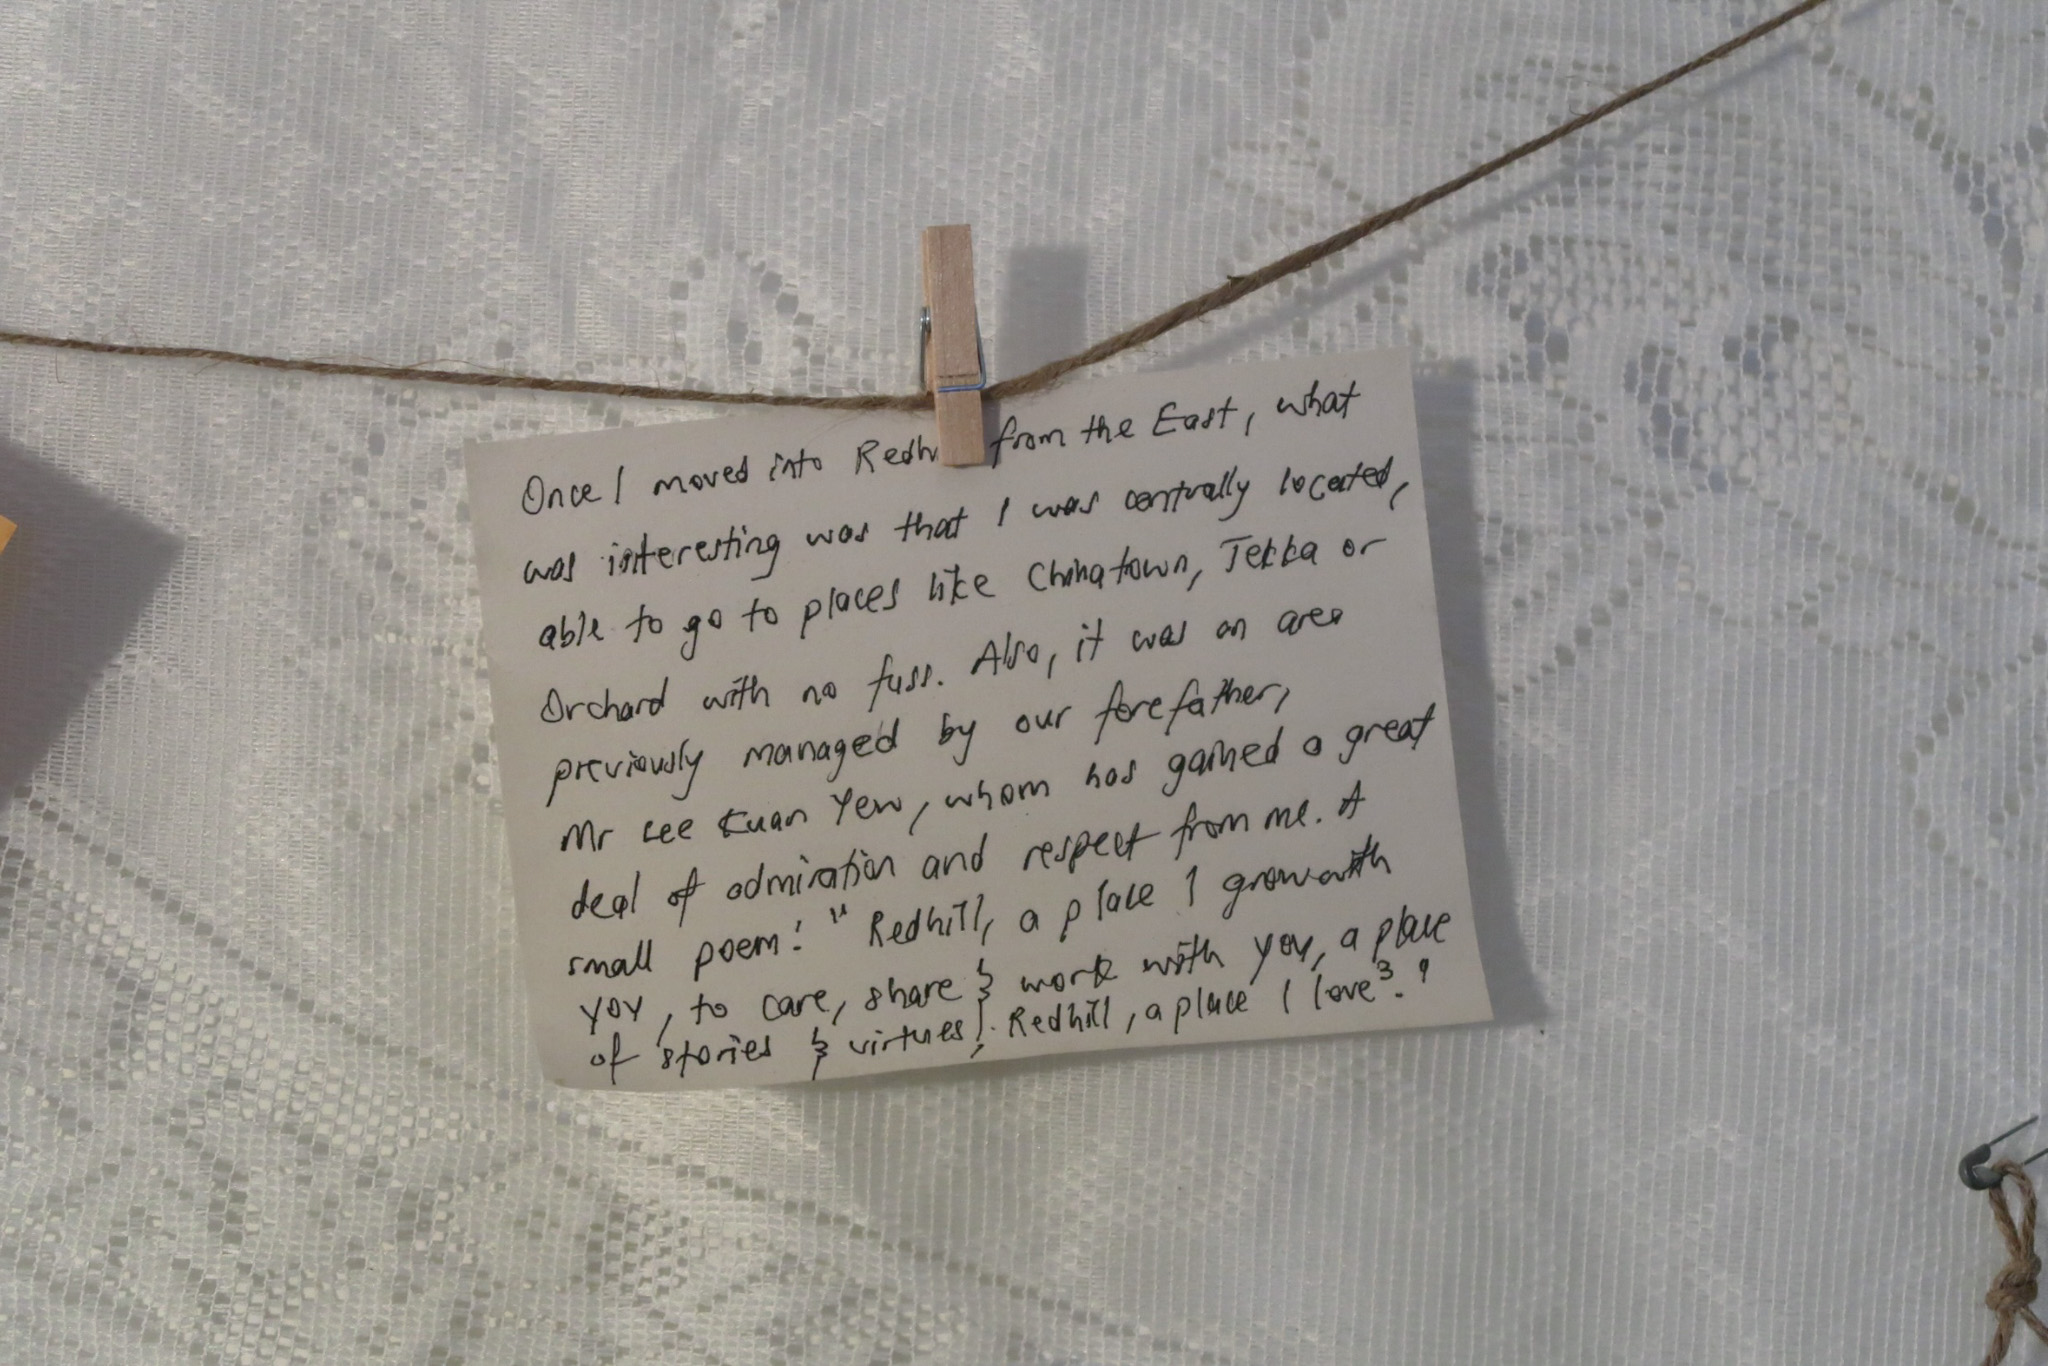 Once I moved into Redh from the East, what
was interesting was that I was centrally located,
able to go to places like Chinatown, Tekka or
Orchard with no fuss. Also, it was an area
previously managed by our forefather,
Mr Lee Kuan Yew, whom has gained a great
deal of admiration and respect from me. A
small poem: "Redhill, a place I grow with
you, to care, share & work with you, a place
of stories & virtues!. Redhill, a place I love³."